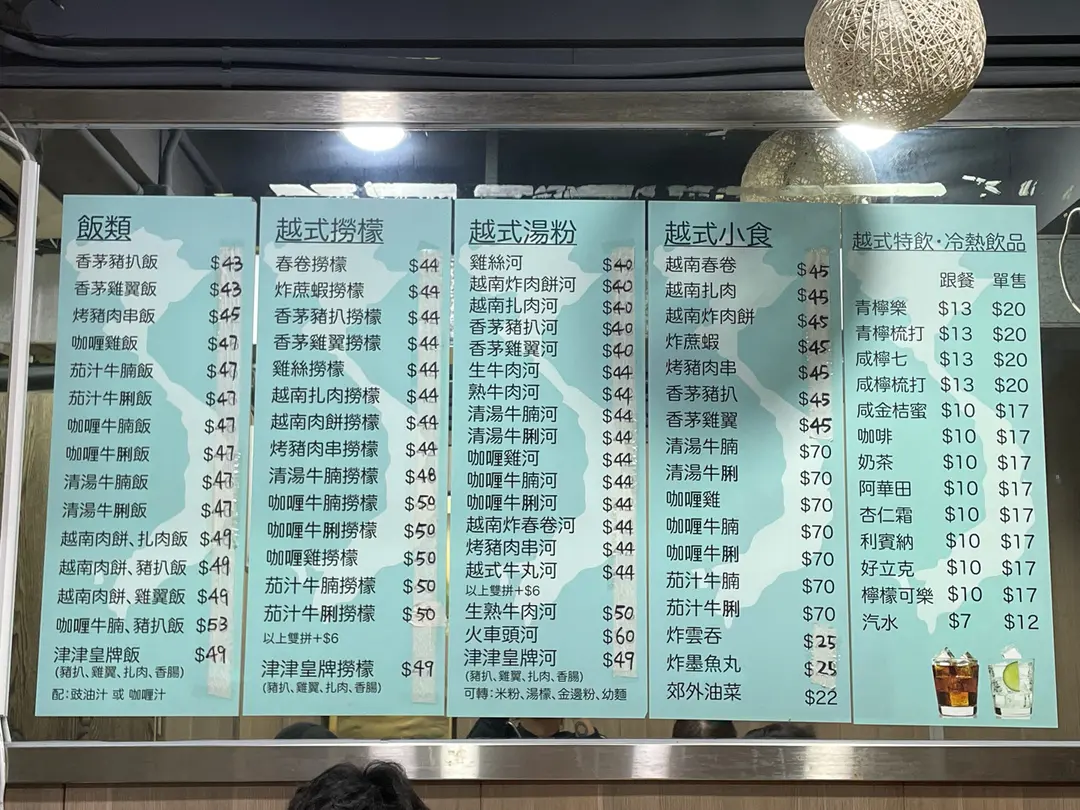 飯類
香茅豬扒飯 $43
香茅雞翼飯 $43
烤豬肉串飯 $45
咖喱雞飯 $47
茄汁牛腩飯 $47
茄汁牛脷飯 $47
咖喱牛腩飯 $47
咖喱牛脷飯 $47
清湯牛腩飯 $47
清湯牛脷飯 $47
越南肉餅、扎肉飯 $49
越南肉餅、豬扒飯 $49
越南肉餅、雞翼飯 $49
咖喱牛腩、豬扒飯 $53
津津皇牌飯 $49
(豬扒、雞翼、扎肉、香腸)
配:豉油汁 或 咖喱汁
越式撈檬
春卷撈檬 $44
炸蔗蝦撈檬 $44
香茅豬扒撈檬 $44
香茅雞翼撈檬 $44
雞絲撈檬 $44
越南扎肉撈檬 $44
越南肉餅撈檬 $44
烤豬肉串撈檬 $44
清湯牛腩撈檬 $48
咖喱牛腩撈檬 $50
咖喱牛脷撈檬 $50
咖喱雞撈檬 $50
茄汁牛腩撈檬 $50
茄汁牛脷撈檬 $50
以上雙拼+$6
津津皇牌撈檬 $49
(豬扒、雞翼、扎肉、香腸)
越式湯粉
雞絲河 $40
越南炸肉餅河 $40
越南扎肉河 $40
香茅豬扒河 $40
香茅雞翼河 $40
生牛肉河 $44
熟牛肉河 $44
清湯牛腩河 $44
清湯牛脷河 $44
咖喱雞河 $44
咖喱牛腩河 $44
咖喱牛脷河 $44
越南炸春卷河 $44
烤豬肉串河 $44
越式牛丸河 $44
以上雙拼+$6
生熟牛肉河 $50
火車頭河 $60
津津皇牌河 $49
(豬扒、雞翼、扎肉、香腸)
可轉:米粉、湯檬、金邊粉、幼麵
越式小食
越南春卷 $45
越南扎肉 $45
越南炸肉餅 $45
炸蔗蝦 $45
烤豬肉串 $45
香茅豬扒 $45
香茅雞翼 $45
清湯牛腩 $70
清湯牛脷 $70
咖喱雞 $70
咖喱牛腩 $70
咖喱牛脷 $70
茄汁牛腩 $70
茄汁牛脷 $70
炸雲吞 $25
炸墨魚丸 $25
郊外油菜 $22
越式特飲·冷熱飲品
跟餐 單售
青檸樂 $13 $20
青檸梳打 $13 $20
咸檸七 $13 $20
咸檸梳打 $13 $20
咸金桔蜜 $10 $17
咖啡 $10 $17
奶茶 $10 $17
阿華田 $10 $17
杏仁霜 $10 $17
利賓納 $10 $17
好立克 $10 $17
檸檬可樂 $10 $17
汽水 $7 $12